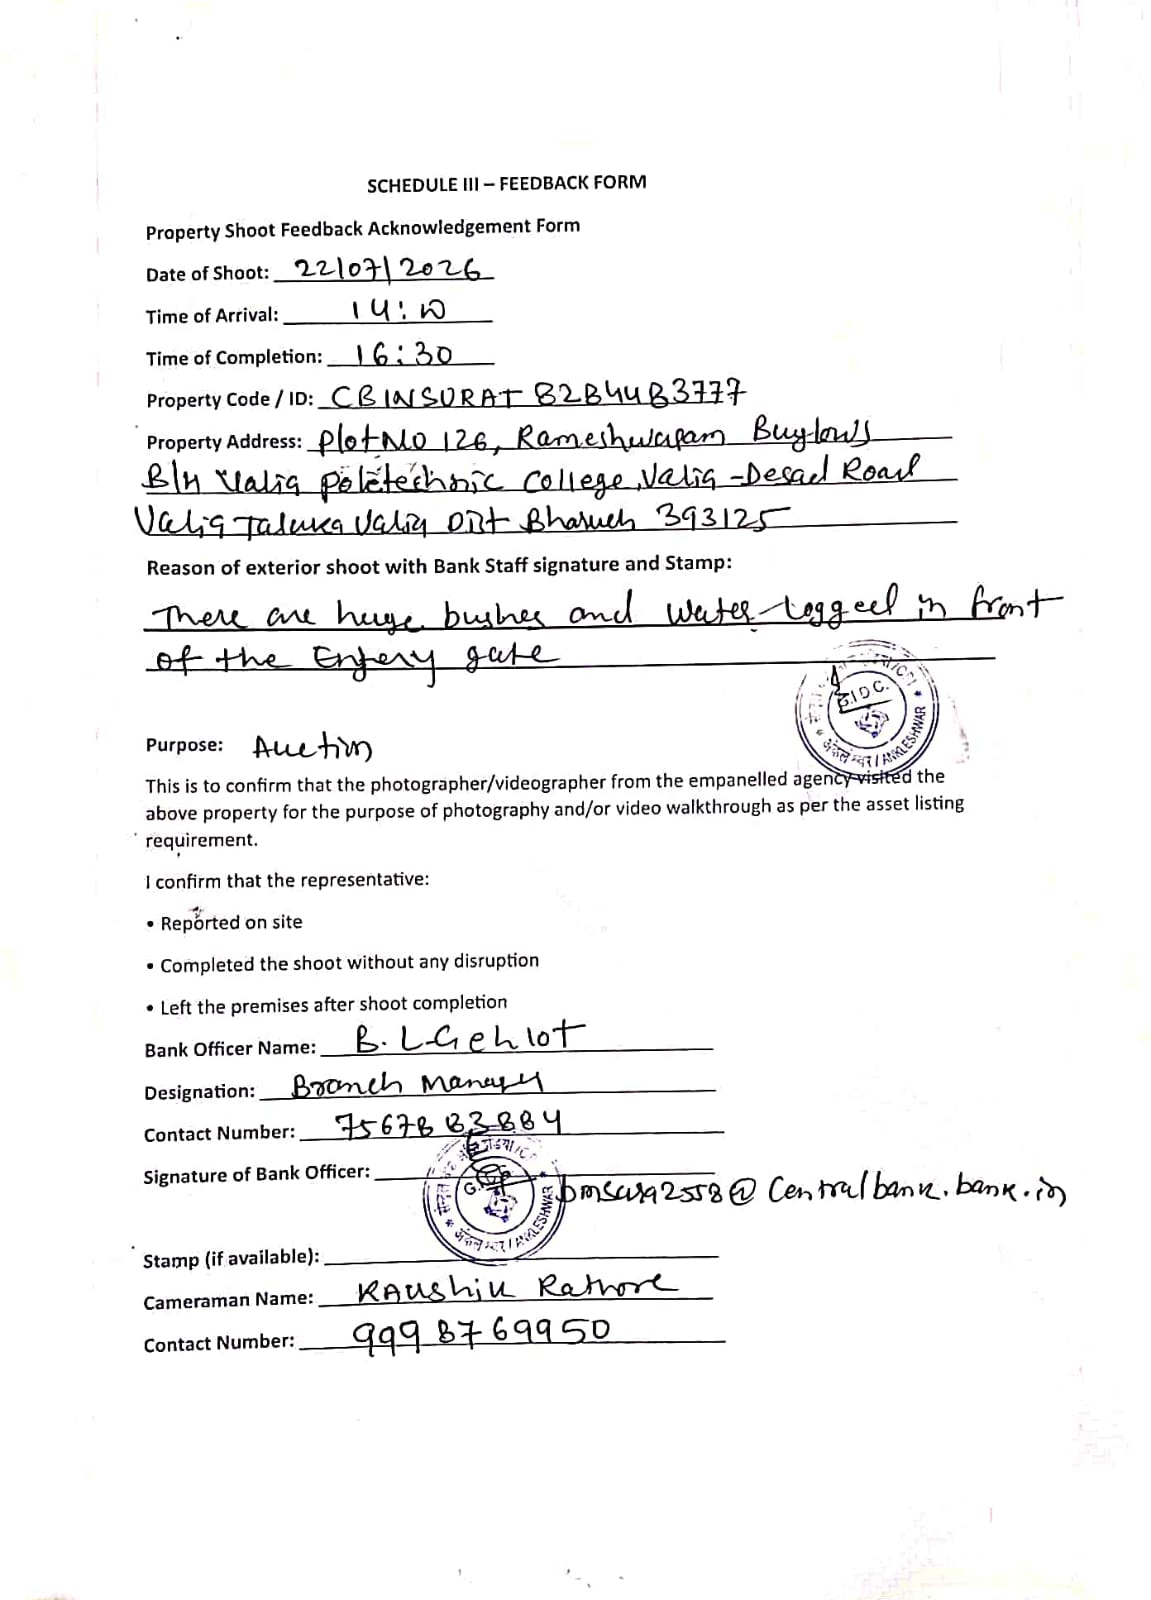 SCHEDULE III – FEEDBACK FORM
Property Shoot Feedback Acknowledgement Form
Date of Shoot: 22/07/2026
Time of Arrival: 14:10
Time of Completion: 16:30
Property Code / ID: CBINSURAT82B44B3777
Property Address: Plot No 126, Rameshwaram Buglows
B/H Valia Poletechnic College, Valia -Desad Road
Valia Taluka Valia Dist Bharuch 393125
Reason of exterior shoot with Bank Staff signature and Stamp:
There are huge bushes and water-logged in front
of the Entery gate
G.I.D.C.
अंकलेश्वर / ANKLESHWAR
Purpose: Auction
This is to confirm that the photographer/videographer from the empanelled agency visited the
above property for the purpose of photography and/or video walkthrough as per the asset listing
requirement.
I confirm that the representative:
• Reported on site
• Completed the shoot without any disruption
• Left the premises after shoot completion
Bank Officer Name: B. L. Gehlot
Designation: Branch Manager
Contact Number: 7567883884
Signature of Bank Officer:
@centralbank.bank.in
अंकलेश्वर / ANKLESHWAR
Stamp (if available):
Cameraman Name: Kaushik Rathore
Contact Number: 9998769950